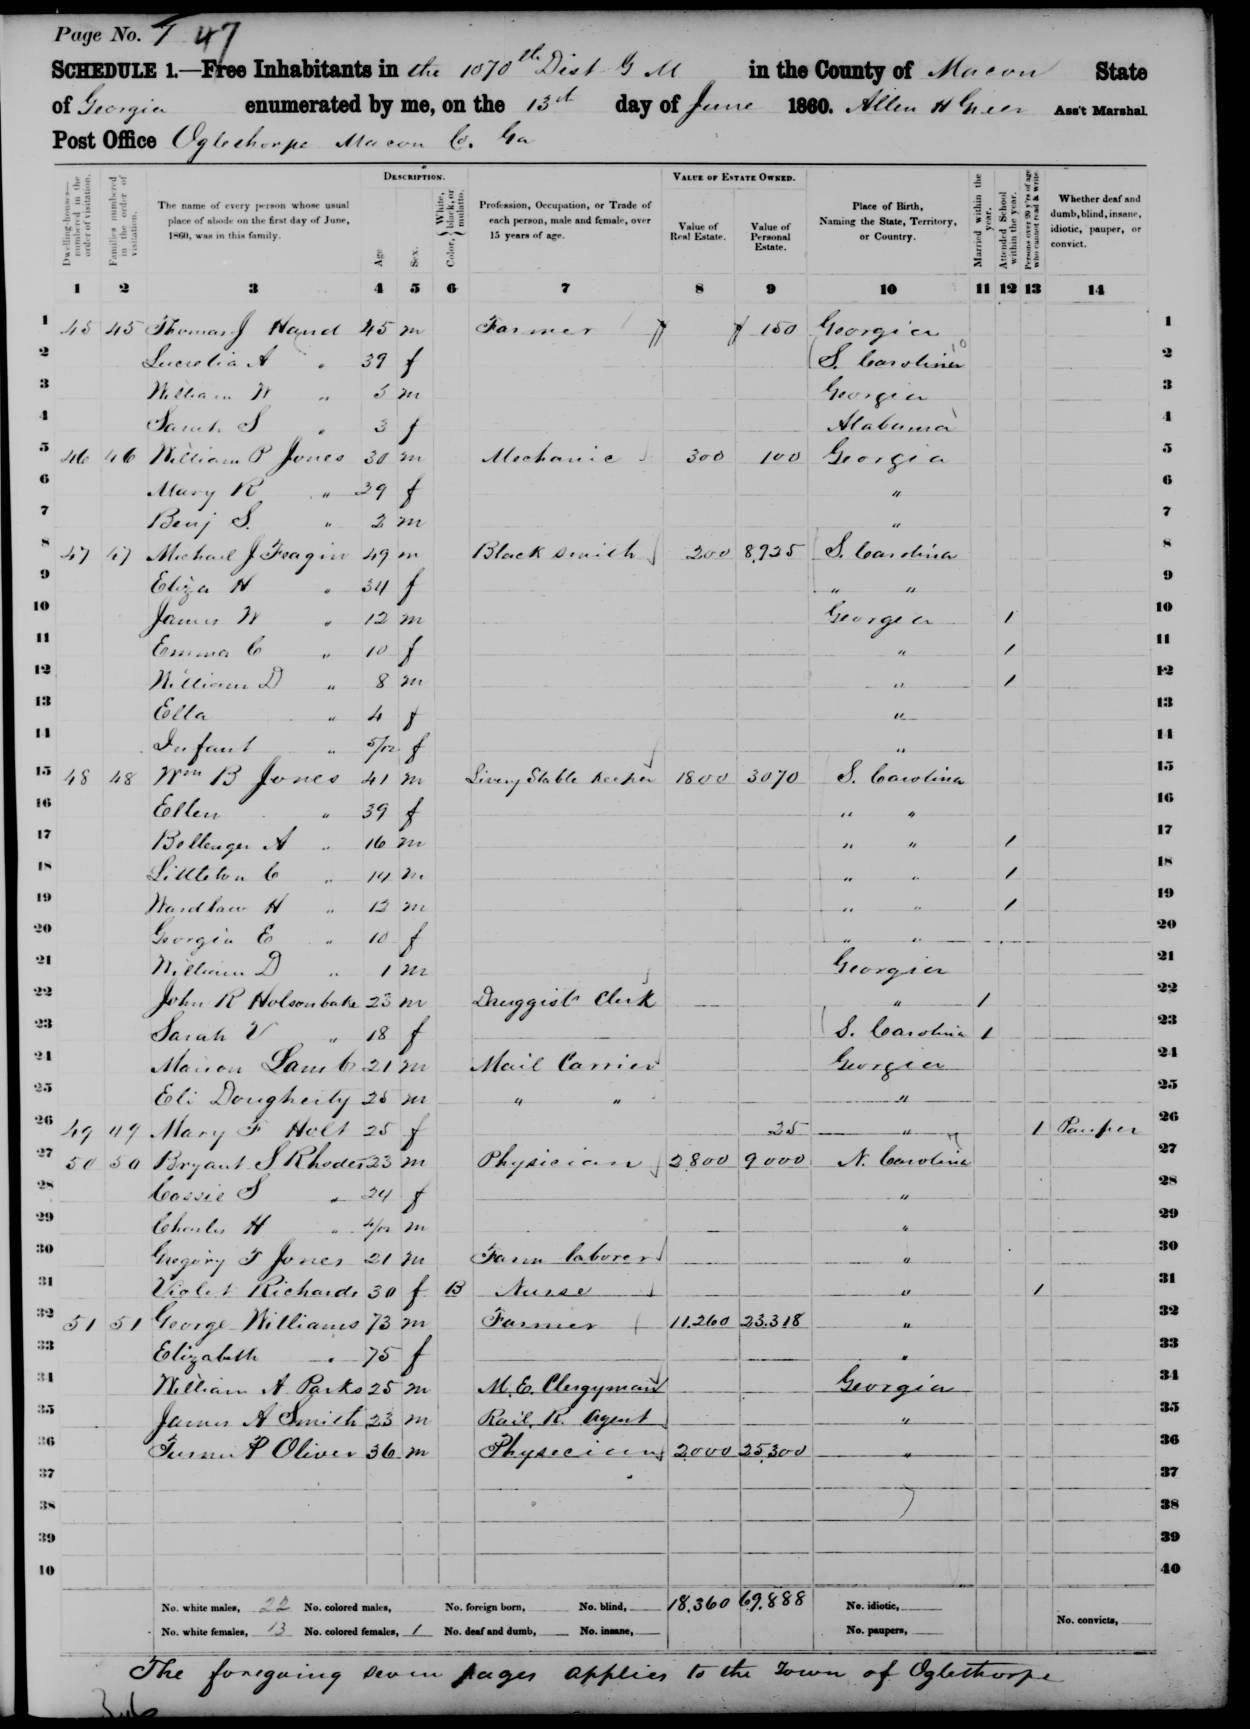 Page No. 7 47
SCHEDULE 1.—Free Inhabitants in the 1070th Dist G M in the County of Macon State
of Georgia enumerated by me, on the 13th day of June 1860. Allen H Greer Ass't Marshal.
Post Office Oglethorpe Macon Co. Ga
DESCRIPTION. VALUE OF ESTATE OWNED.
Dwelling-houses—numbered in the order of visitation. Families numbered in the order of visitation. The name of every person whose usual place of abode on the first day of June, 1860, was in this family. Age Sex Color, { White, black, or mulatto. Profession, Occupation, or Trade of each person, male and female, over 15 years of age. Value of Real Estate. Value of Personal Estate. Place of Birth, Naming the State, Territory, or Country. Married within the year. Attended School within the year. Persons over 20 y'rs of age who cannot read & write. Whether deaf and dumb, blind, insane, idiotic, pauper, or convict.
1 2 3 4 5 6 7 8 9 10 11 12 13 14
1 45 45 Thomas J Hand 45 m Farmer 150 Georgia 1
2 Lucretia A " 39 f S. Carolina 2
3 William W " 5 m Georgia 3
4 Sarah S " 3 f Alabama 4
5 46 46 William P Jones 30 m Mechanic 300 100 Georgia 5
6 Mary R " 29 f " 6
7 Benj S. " 2 m " 7
8 47 47 Michael J Feagin 49 m Blacksmith 200 8,925 S. Carolina 8
9 Eliza H " 34 f " " 9
10 James W " 12 m Georgia 1 10
11 Emma C " 10 f " 1 11
12 William D " 8 m " 1 12
13 Ella " 4 f " 13
14 Infant " 5/12 f " 14
15 48 48 Wm B Jones 41 m Livery Stable Keeper 1800 3070 S. Carolina 15
16 Ellen " 39 f " " 16
17 Bellenger A " 16 m " " 1 17
18 Littleton C " 14 m " " 1 18
19 Wardlaw H " 12 m " " 1 19
20 Georgia E " 10 f " " 20
21 William D " 1 m Georgia 21
22 John R Holsonbake 23 m Druggist Clerk " 1 22
23 Sarah V " 18 f S. Carolina 1 23
24 Marion Lamb 21 m Mail Carrier Georgia 24
25 Eli Dougherty 25 m " " " 25
26 49 49 Mary F Holt 25 f 25 " 1 Pauper 26
27 50 50 Bryant S Rhodes 23 m Physician 2800 9000 N. Carolina 27
28 Cassie S " 24 f " 28
29 Charles H " 4/12 m " 29
30 Gregory T Jones 21 m Farm laborer " 30
31 Violet Richards 30 f B Nurse " 1 31
32 51 51 George Williams 73 m Farmer 11,260 23,318 " 32
33 Elizabeth " 75 f " 33
34 William A Parks 25 m M. E. Clergyman Georgia 34
35 James A Smith 23 m Rail. R. Agent " 35
36 Turner P Oliver 36 m Physecian 2000 25,300 " 36
37 37
38 38
39 39
40 40
No. white males, 22 No. colored males, No. foreign born, No. blind, 18,360 69,888 No. idiotic,
No. white females, 13 No. colored females, 1 No. deaf and dumb, No. insane, No. paupers, No. convicts,
The foregoing seven pages applies to the Town of Oglethorpe